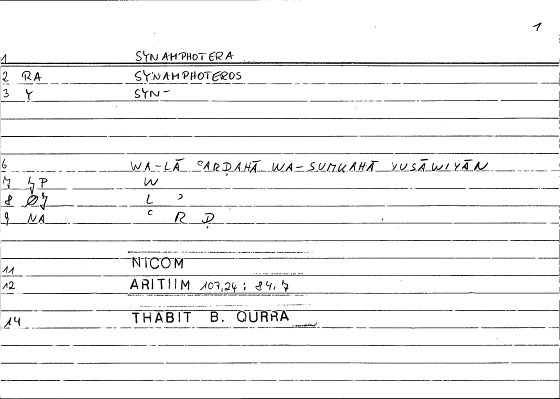 1
1 SYNAMPHOTERA
2 RA SYNAMPHOTEROS
3 Y SYN-
6 WA-LĀ ʿARḌAHĀ WA-SUMKAHĀ YUSĀWIYĀN
7 W
8 L ʾ
9 NA ʿ R Ḍ
11 NICOM
12 ARITIIM 107,24 : 84,7
14 THABIT B. QURRA